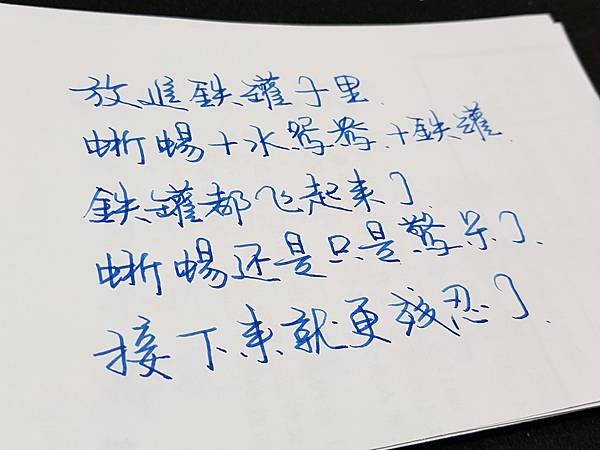 放進鉄罐子里
蜥蜴+水鴛鴦+鉄罐
鉄罐都飞起来了
蜥蜴还是只是驚呆了.
接下来就更残忍了.